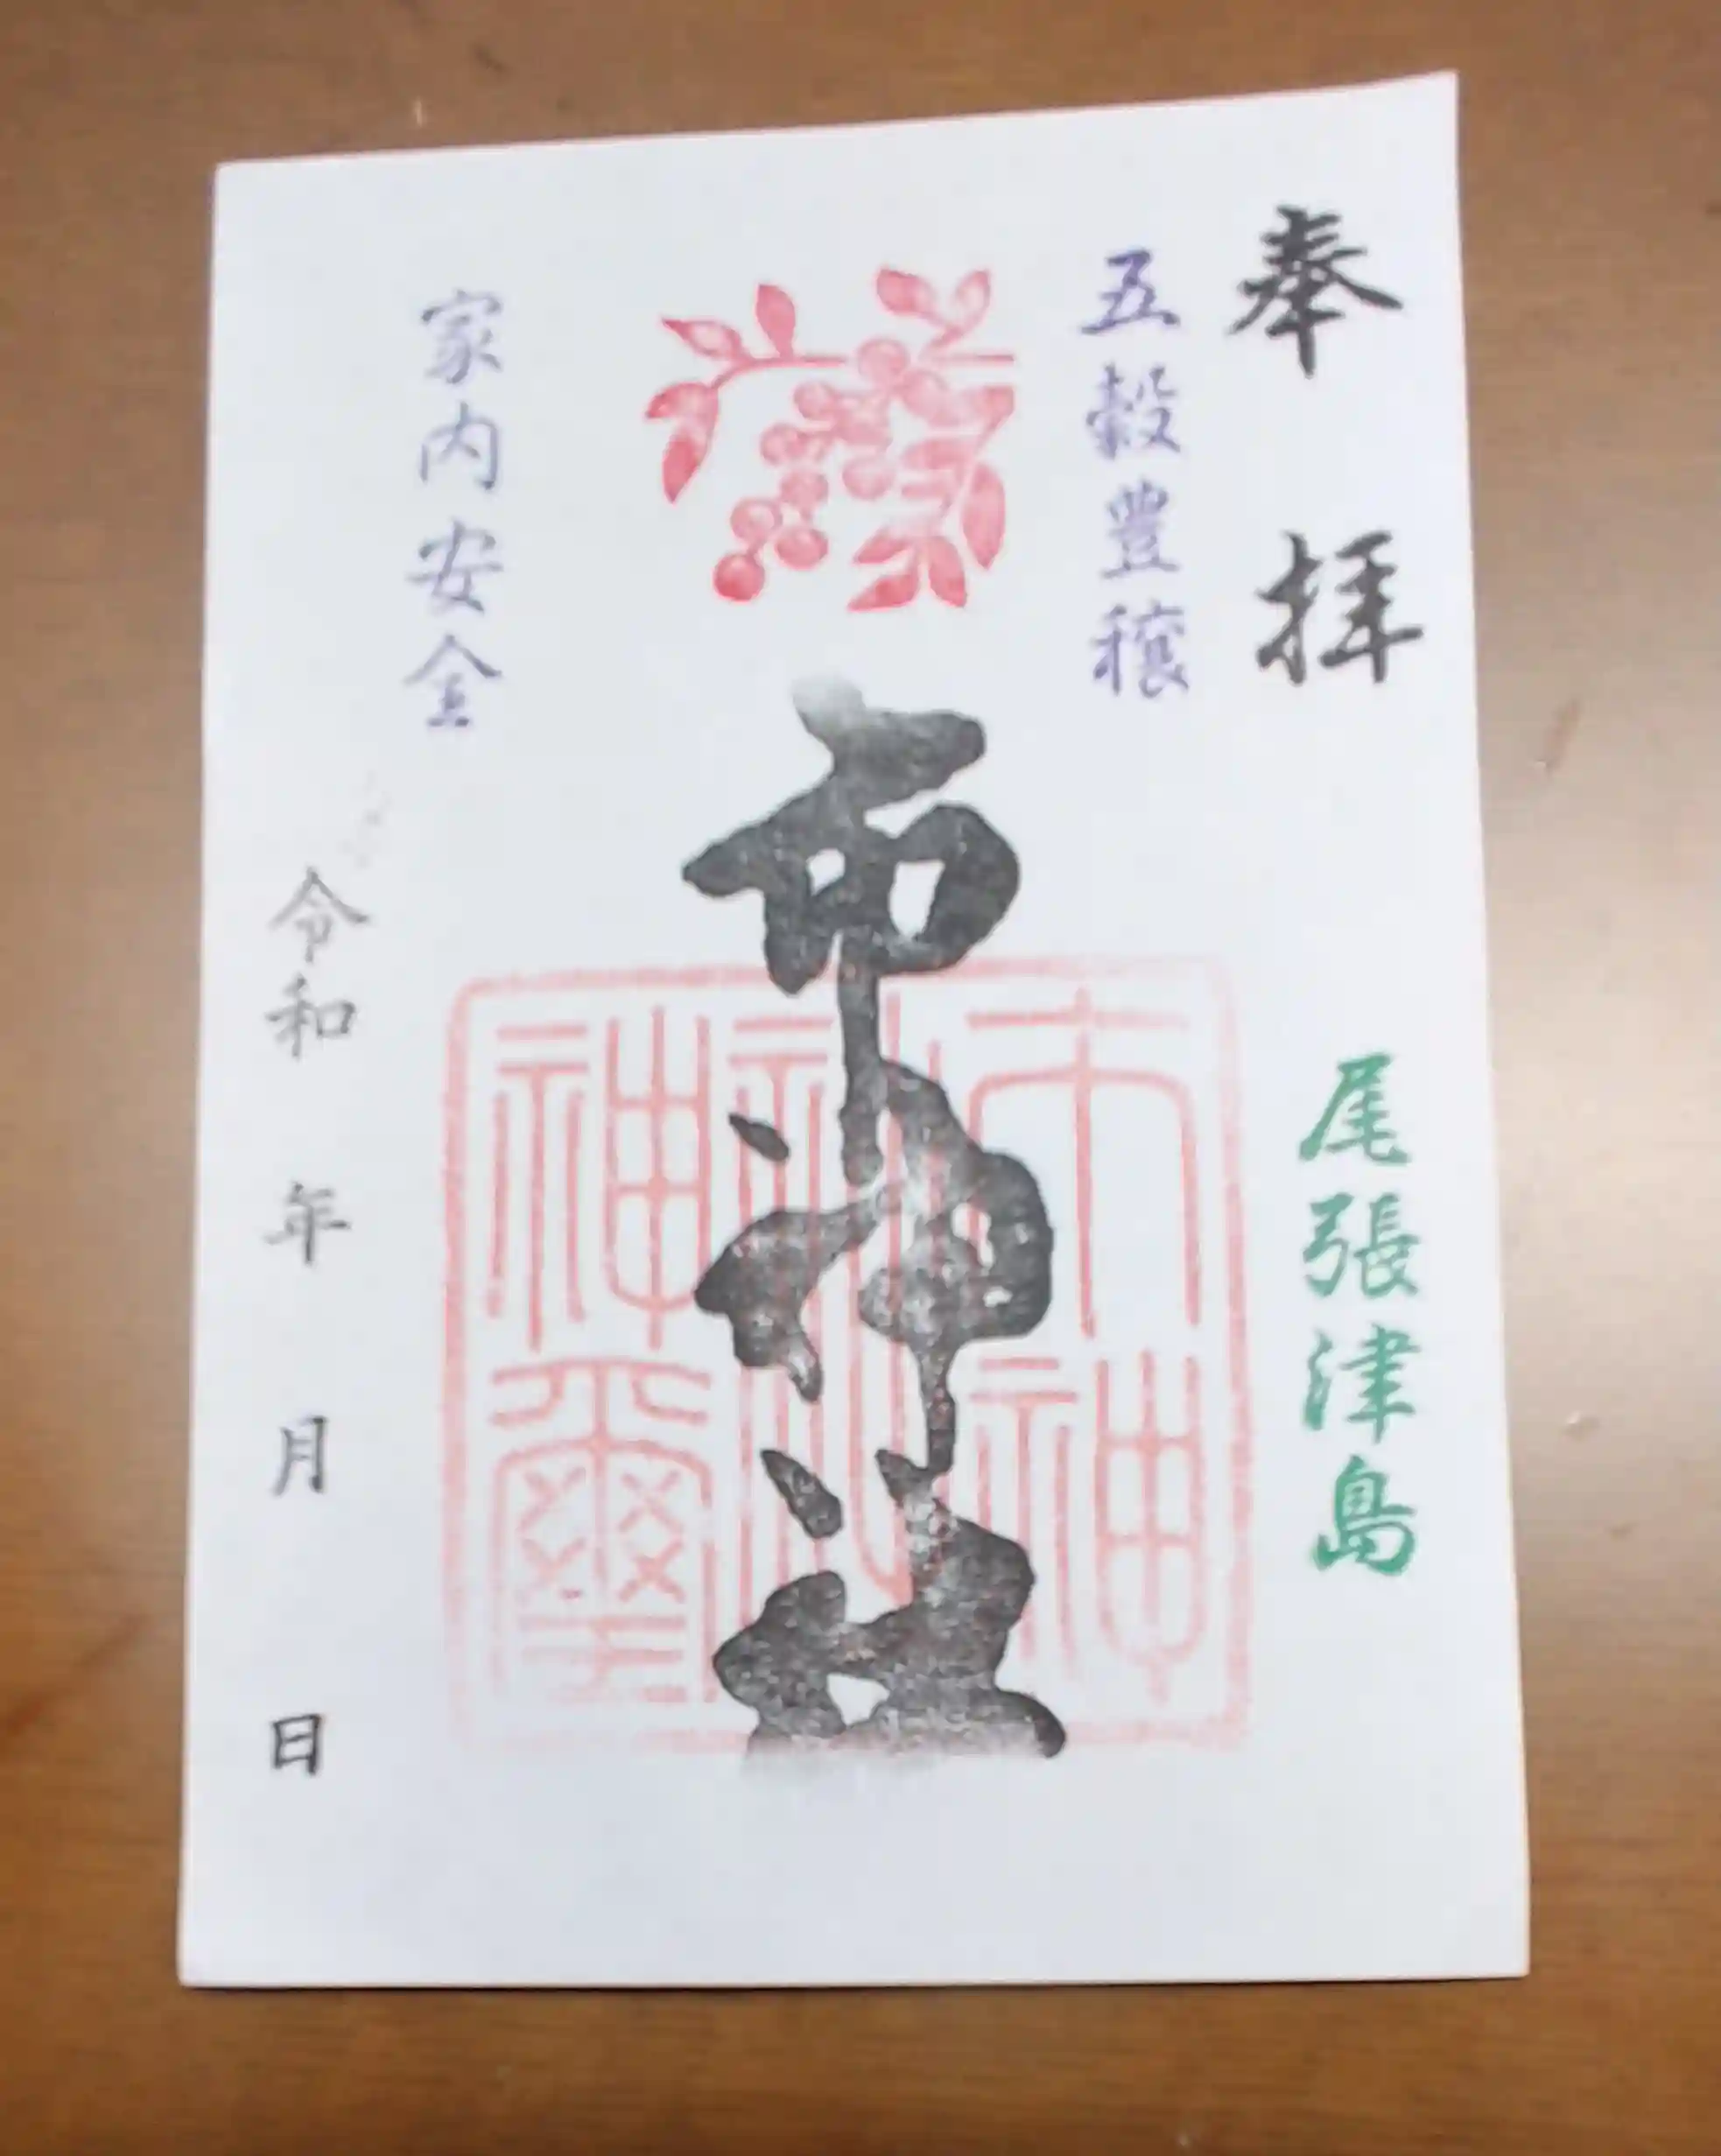 奉拝
尾張津島
五穀豊穣
市神社
市神社神璽
家内安全
令和 年 月 日